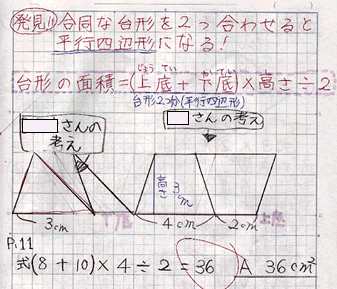 発見!! 合同な台形を2つ合わせると
平行四辺形になる!
じょうてい かてい
台形の面積=(上底+下底)×高さ÷2
台形2つ分(平行四辺形)
さんの考え
さんの考え
高さ 3cm
3cm 下底 4cm 2cm 上底
P.11
式(8+10)×4÷2=36 A 36cm²